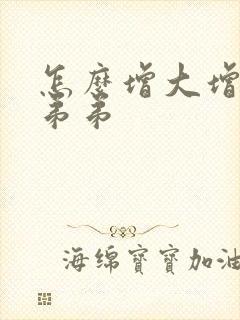 怎麼增大增
弟弟
海绵寶寶加油